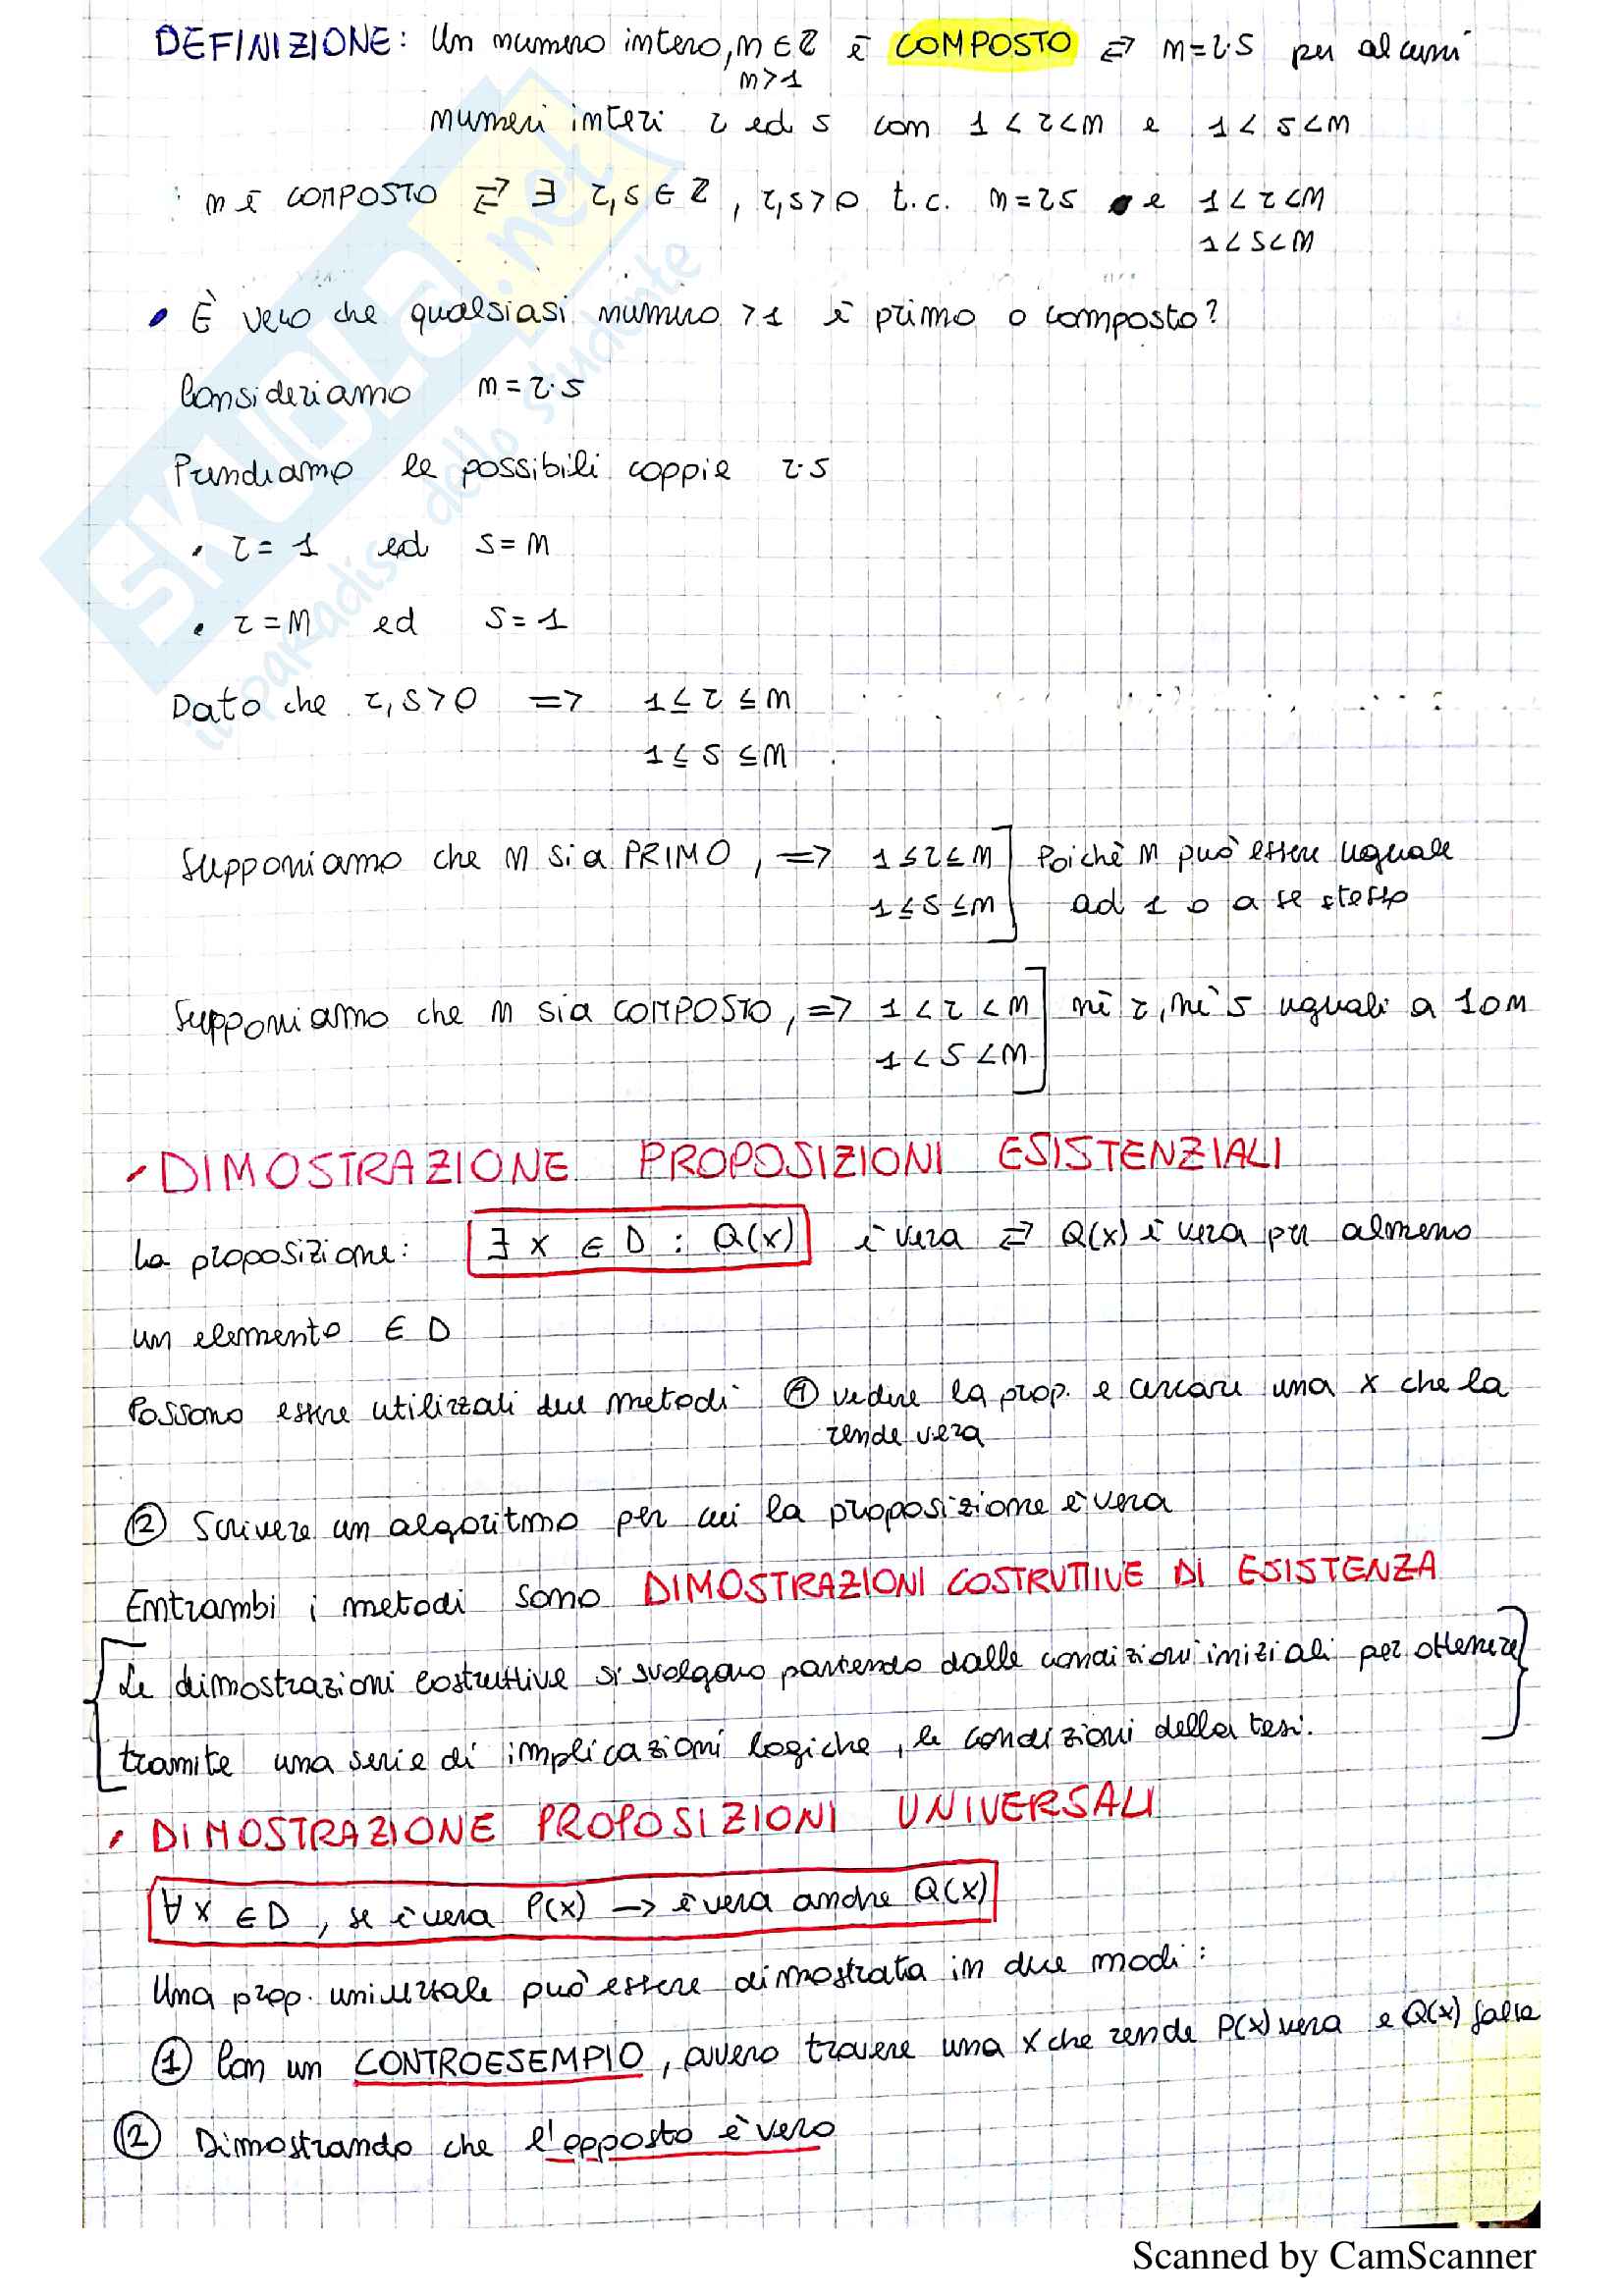 DEFINIZIONE: Un numero intero, n ∈ ℤ è COMPOSTO ⇄ n = r·s per alcuni
n > 1
numeri interi r ed s con 1 < r < n e 1 < s < n
: n è COMPOSTO ⇄ ∃ r, s ∈ ℤ, r, s > 0 t.c. n = rs e 1 < r < n
1 < s < n
• È vero che qualsiasi numero > 1 è primo o composto?
Consideriamo n = r·s
Prendiamo le possibili coppie r·s
• r = 1 ed s = n
• r = n ed s = 1
Dato che r, s > 0 => 1 ≤ r ≤ n
1 ≤ s ≤ n
Supponiamo che n sia PRIMO, => 1 ≤ r ≤ n ] Poichè n può essere uguale
1 ≤ s ≤ n ad 1 o a se stesso
Supponiamo che n sia COMPOSTO, => 1 < r < n ] nè r, nè s uguali a 1 o n
1 < s < n
DIMOSTRAZIONE PROPOSIZIONI ESISTENZIALI
La proposizione: ∃ x ∈ D : Q(x) è vera ⇄ Q(x) è vera per almeno
un elemento ∈ D
Possono essere utilizzati due metodi ① vedere la prop. e cercare una x che la
rende vera
② Scrivere un algoritmo per cui la proposizione è vera
Entrambi i metodi sono DIMOSTRAZIONI COSTRUTTIVE DI ESISTENZA
Le dimostrazioni costruttive si svolgono partendo dalle condizioni iniziali per ottenere
tramite una serie di implicazioni logiche, le condizioni della tesi.
DIMOSTRAZIONE PROPOSIZIONI UNIVERSALI
∀ x ∈ D, se è vera P(x) → è vera anche Q(x)
Una prop. universale può essere dimostrata in due modi:
① Con un CONTROESEMPIO, ovvero trovere una x che rende P(x) vera e Q(x) falsa
② Dimostrando che l'opposto è vero
SKUOLA.net
il paradiso dello studente
Scanned by CamScanner